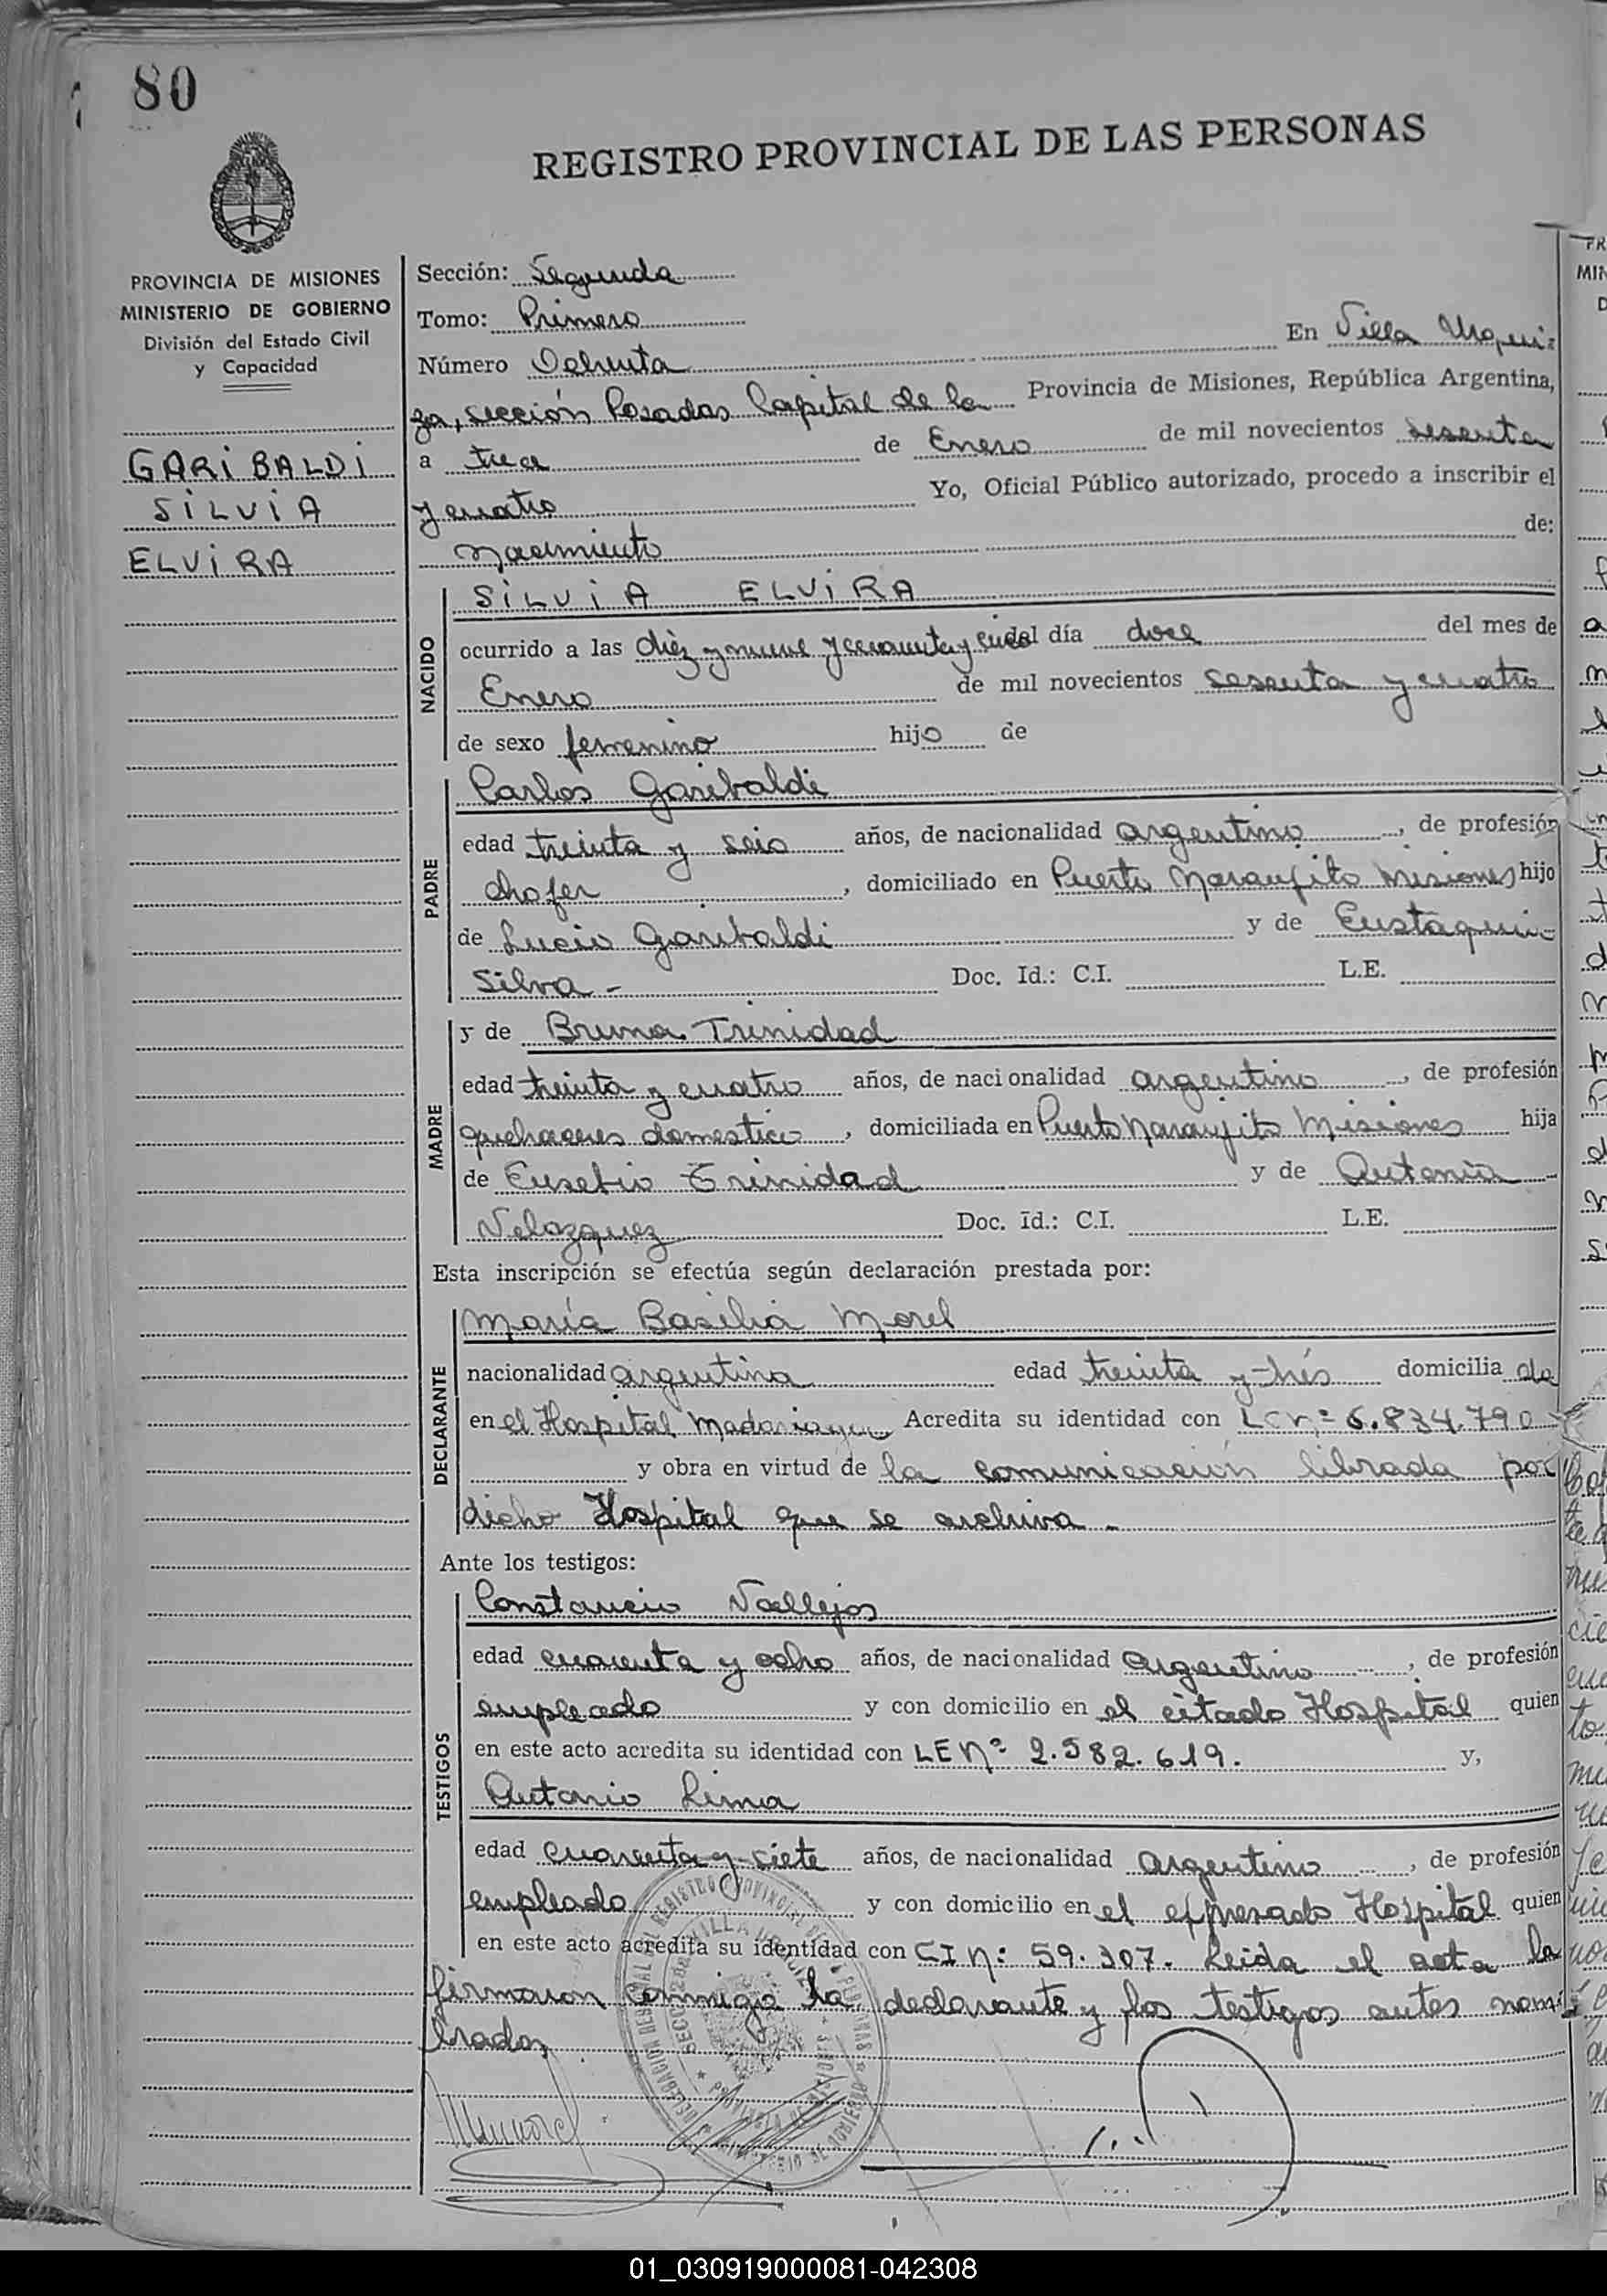 80
REGISTRO PROVINCIAL DE LAS PERSONAS
PROVINCIA DE MISIONES
MINISTERIO DE GOBIERNO
División del Estado Civil
y Capacidad
GARIBALDI
SILVIA
ELVIRA
Sección: Segunda
Tomo: Primero
Número Ochenta En Villa Urqui-
za, sección Posadas Capital de la Provincia de Misiones, República Argentina,
a de Enero de mil novecientos sesenta
y cuatro Yo, Oficial Público autorizado, procedo a inscribir el
nacimiento de:
NACIDO
SILVIA ELVIRA
ocurrido a las diez y nueve y cuarenta y día doce del mes de
Enero de mil novecientos sesenta y cuatro
de sexo femenino hijo de
PADRE
Carlos Garibaldi
edad treinta y seis años, de nacionalidad argentino, de profesión
chofer, domiciliado en Puerto Naranjito Misiones hijo
de Lucio Garibaldi y de Eustaqui
Silva - Doc. Id.: C.I. L.E.
MADRE
y de Bruna Trinidad
edad treinta y cuatro años, de nacionalidad argentino, de profesión
quehaceres domestico, domiciliada en Puerto Naranjito Misiones hija
de Eusebio Trinidad y de Antonia
Velazquez Doc. Id.: C.I. L.E.
Esta inscripción se efectúa según declaración prestada por:
DECLARANTE
María Basilia Morel
nacionalidad argentina edad treinta y trés domicilia da
en el Hospital Madariaga Acredita su identidad con 6.834.790
y obra en virtud de la comunicación librada por
dicho Hospital que se archiva -
Ante los testigos:
TESTIGOS
Constancio Vallejos
edad cuarenta y ocho años, de nacionalidad argentino, de profesión
empleado y con domicilio en el citado Hospital quien
en este acto acredita su identidad con LE Nº 2.582.619. y,
Antonio Lima
edad cuarenta y siete años, de nacionalidad argentino, de profesión
empleado y con domicilio en el expresado Hospital quien
en este acto acredita su identidad con CI Nº 59.307. Leida el acta la
firmaron conmigo la declarante y los testigos antes nom-
brados
01_030919000081-042308